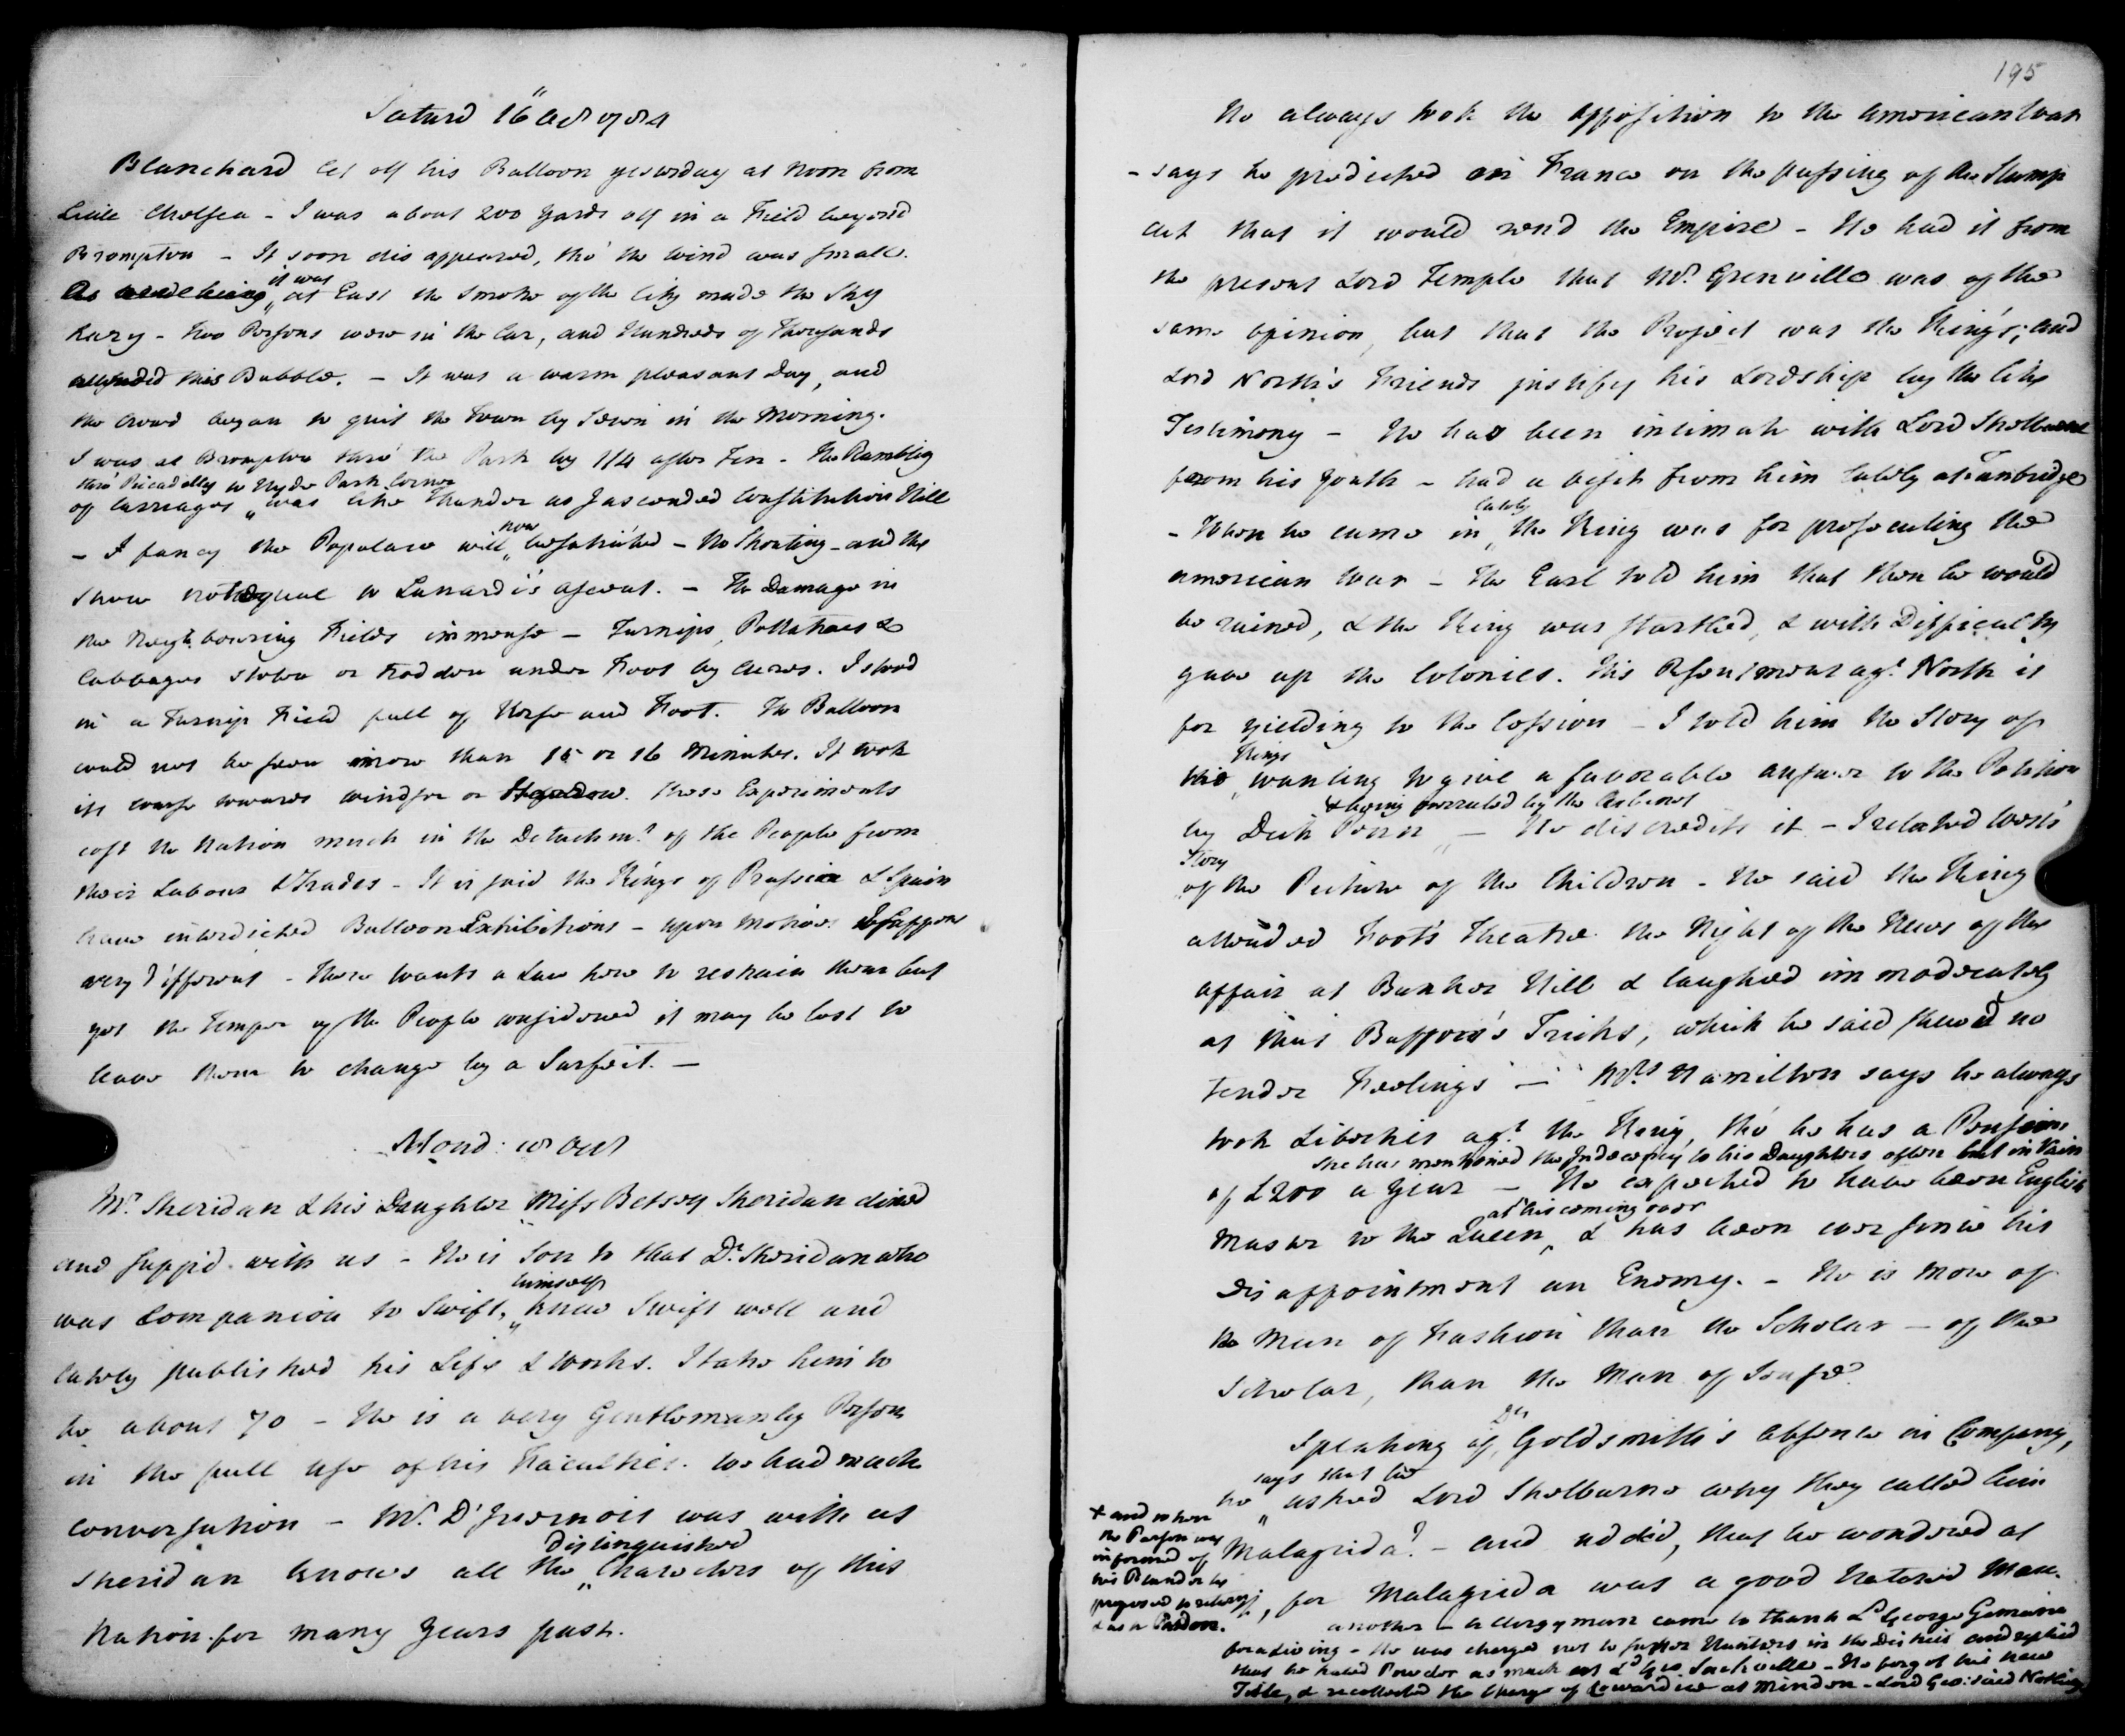 Saturd 16" Oct 1784
Blanchard let off his Balloon yesterday at Noon from
Little Chelsea - I was about 200 Yards off in a Field beyond
Brompton - It soon disappeared, tho' the Wind was small.
it was
at East the Smoke of the City made the Sky
Hazy - Two Persons were in the Car, and Hundreds of Thousands
attended this Bubble. - It was a warm pleasant Day, and
the Crowd began to quit the Town by Seven in the Morning.
I was at Brompton thro' the Park by 1/4 after Ten - The Rumbling
thro' Picadelly to Hyde Park Corner
of Carriages was like Thunder as I ascended Constitution Hill
now
- I fancy the Populace will be satiated - No Shouting - and the
Show not equal to Lunardi's ascent. - The Damage in
the Neighbouring Fields immense - Turnips, Pottatoes &
Cabbages stolen or trodden under Foot by Acres. I stood
in a Turnip Field full of Horse and Foot. The Balloon
could not be seen more than 15 or 16 Minutes. It took
its course towards Windsor or these Experiments
cost the Nation much in the Detachmt of the People from
their Labour & Trades - It is said the Kings of Prussia & Spain
have interdicted Balloon Exhibitions - upon Motives I suppose
very different - There wants a Law here to restrain them but
yet the Temper of the People considered it may be best to
leave them to change by a Surfeit. -
Mond: 18 Oct
Mr. Sheridan & his Daughter Miss Betsey Sheridan dined
and supp'd with us - He is Son to that Dr. Sheridan who
himself
was Companion to Swift, knew Swift well and
lately published his Life & Works. I take him to
be about 70 - He is a very Gentlemanly Person
in the full use of his Faculties. We had much
conversation - Mr. D'Ivernois was with us
distinguished
Sheridan knows all the Characters of this
Nation for many Years past.
195
He always took the Opposition to the American War
- says he predicted in France on the passing of the Stamp
Act that it would rend the Empire - He had it from
the present Lord Temple that Mr. Grenville was of the
same opinion, but that the Project was the King's; and
Lord North's Friends justify his Lordship by the like
Testimony - He has been intimate with Lord Shelburne
from his Youth - had a visit from him lately at Tunbridge
lately
- When he came in the King was for prosecuting the
American War - The Earl told him that then he would
be ruined, & the King was startled, & with Difficulty
gave up the Colonies. His Resentment agt North is
for yielding to the Cession - I told him the Story of
Kings
the wanting to give a favorable answer to the Petition
& being overruled by the Cabinet
by Dick Penn - He discredits it - I related West's
Story
of the Picture of the Children - He said the King
attended Foot's Theatre the Night of the News of the
affair at Bunker Hill & laughed immoderately
at that Buffoon's Tricks, which he said shewed no
tender Feelings - Mrs Hamilton says he always
took Liberties agt the King, tho' he has a Pension
she has mentioned the Indecency to his Daughters often but in Vain
of £200 a Year - He expected to have been English
at his coming over
Master to the Queen, & has been ever since his
Disappointment an Enemy. - He is more of
the Man of Fashion than the Scholar - of the
Scholar, than the Man of Sense.
Dr
Speaking of Goldsmith's absence in Company,
says that he
he asked Lord Shelburne why they called him
Malagrida? - and added, that he wondered at
it, for Malagrida was a good Natured Man.
another - a Clergyman came to thank Ld George Germaine
for a living - He was charged not to suffer Hunters in the District and replied
that he hated Powder as much as Ld Geo. Sackville - He forgot his new
Title, & recollected the Charge of Cowardice at Minden - Lord Geo: said Nothing
+ and when
the Parson was
informed of
his Blunder he
proposed to return
& ask Pardon.